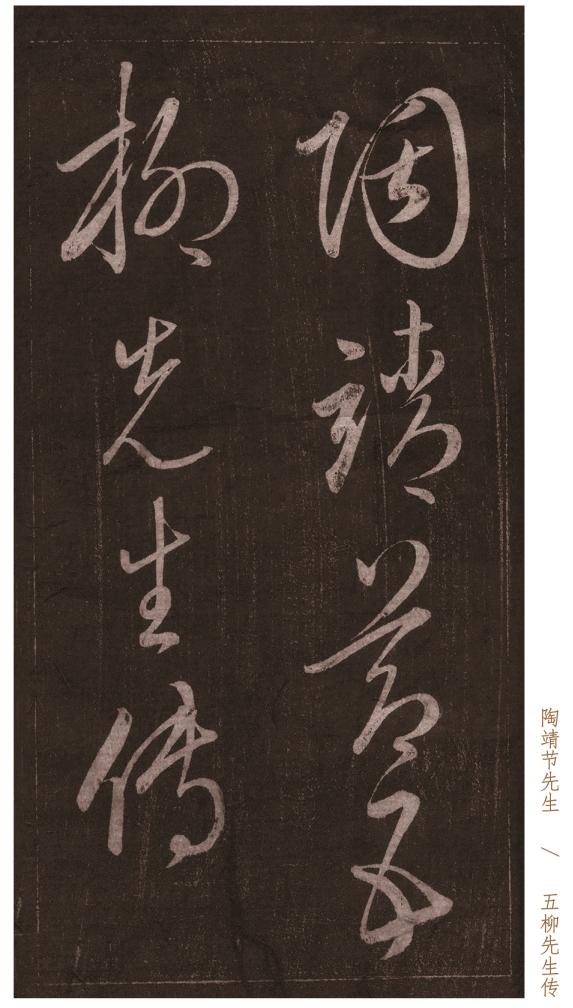 陶靖节五
柳先生传
陶靖节先生 / 五柳先生传